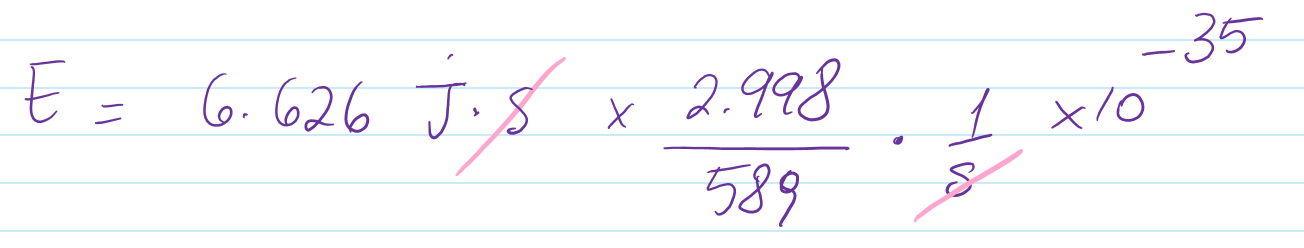 E = 6.626 J·s × 2.998/589 · 1/s ×10^-35